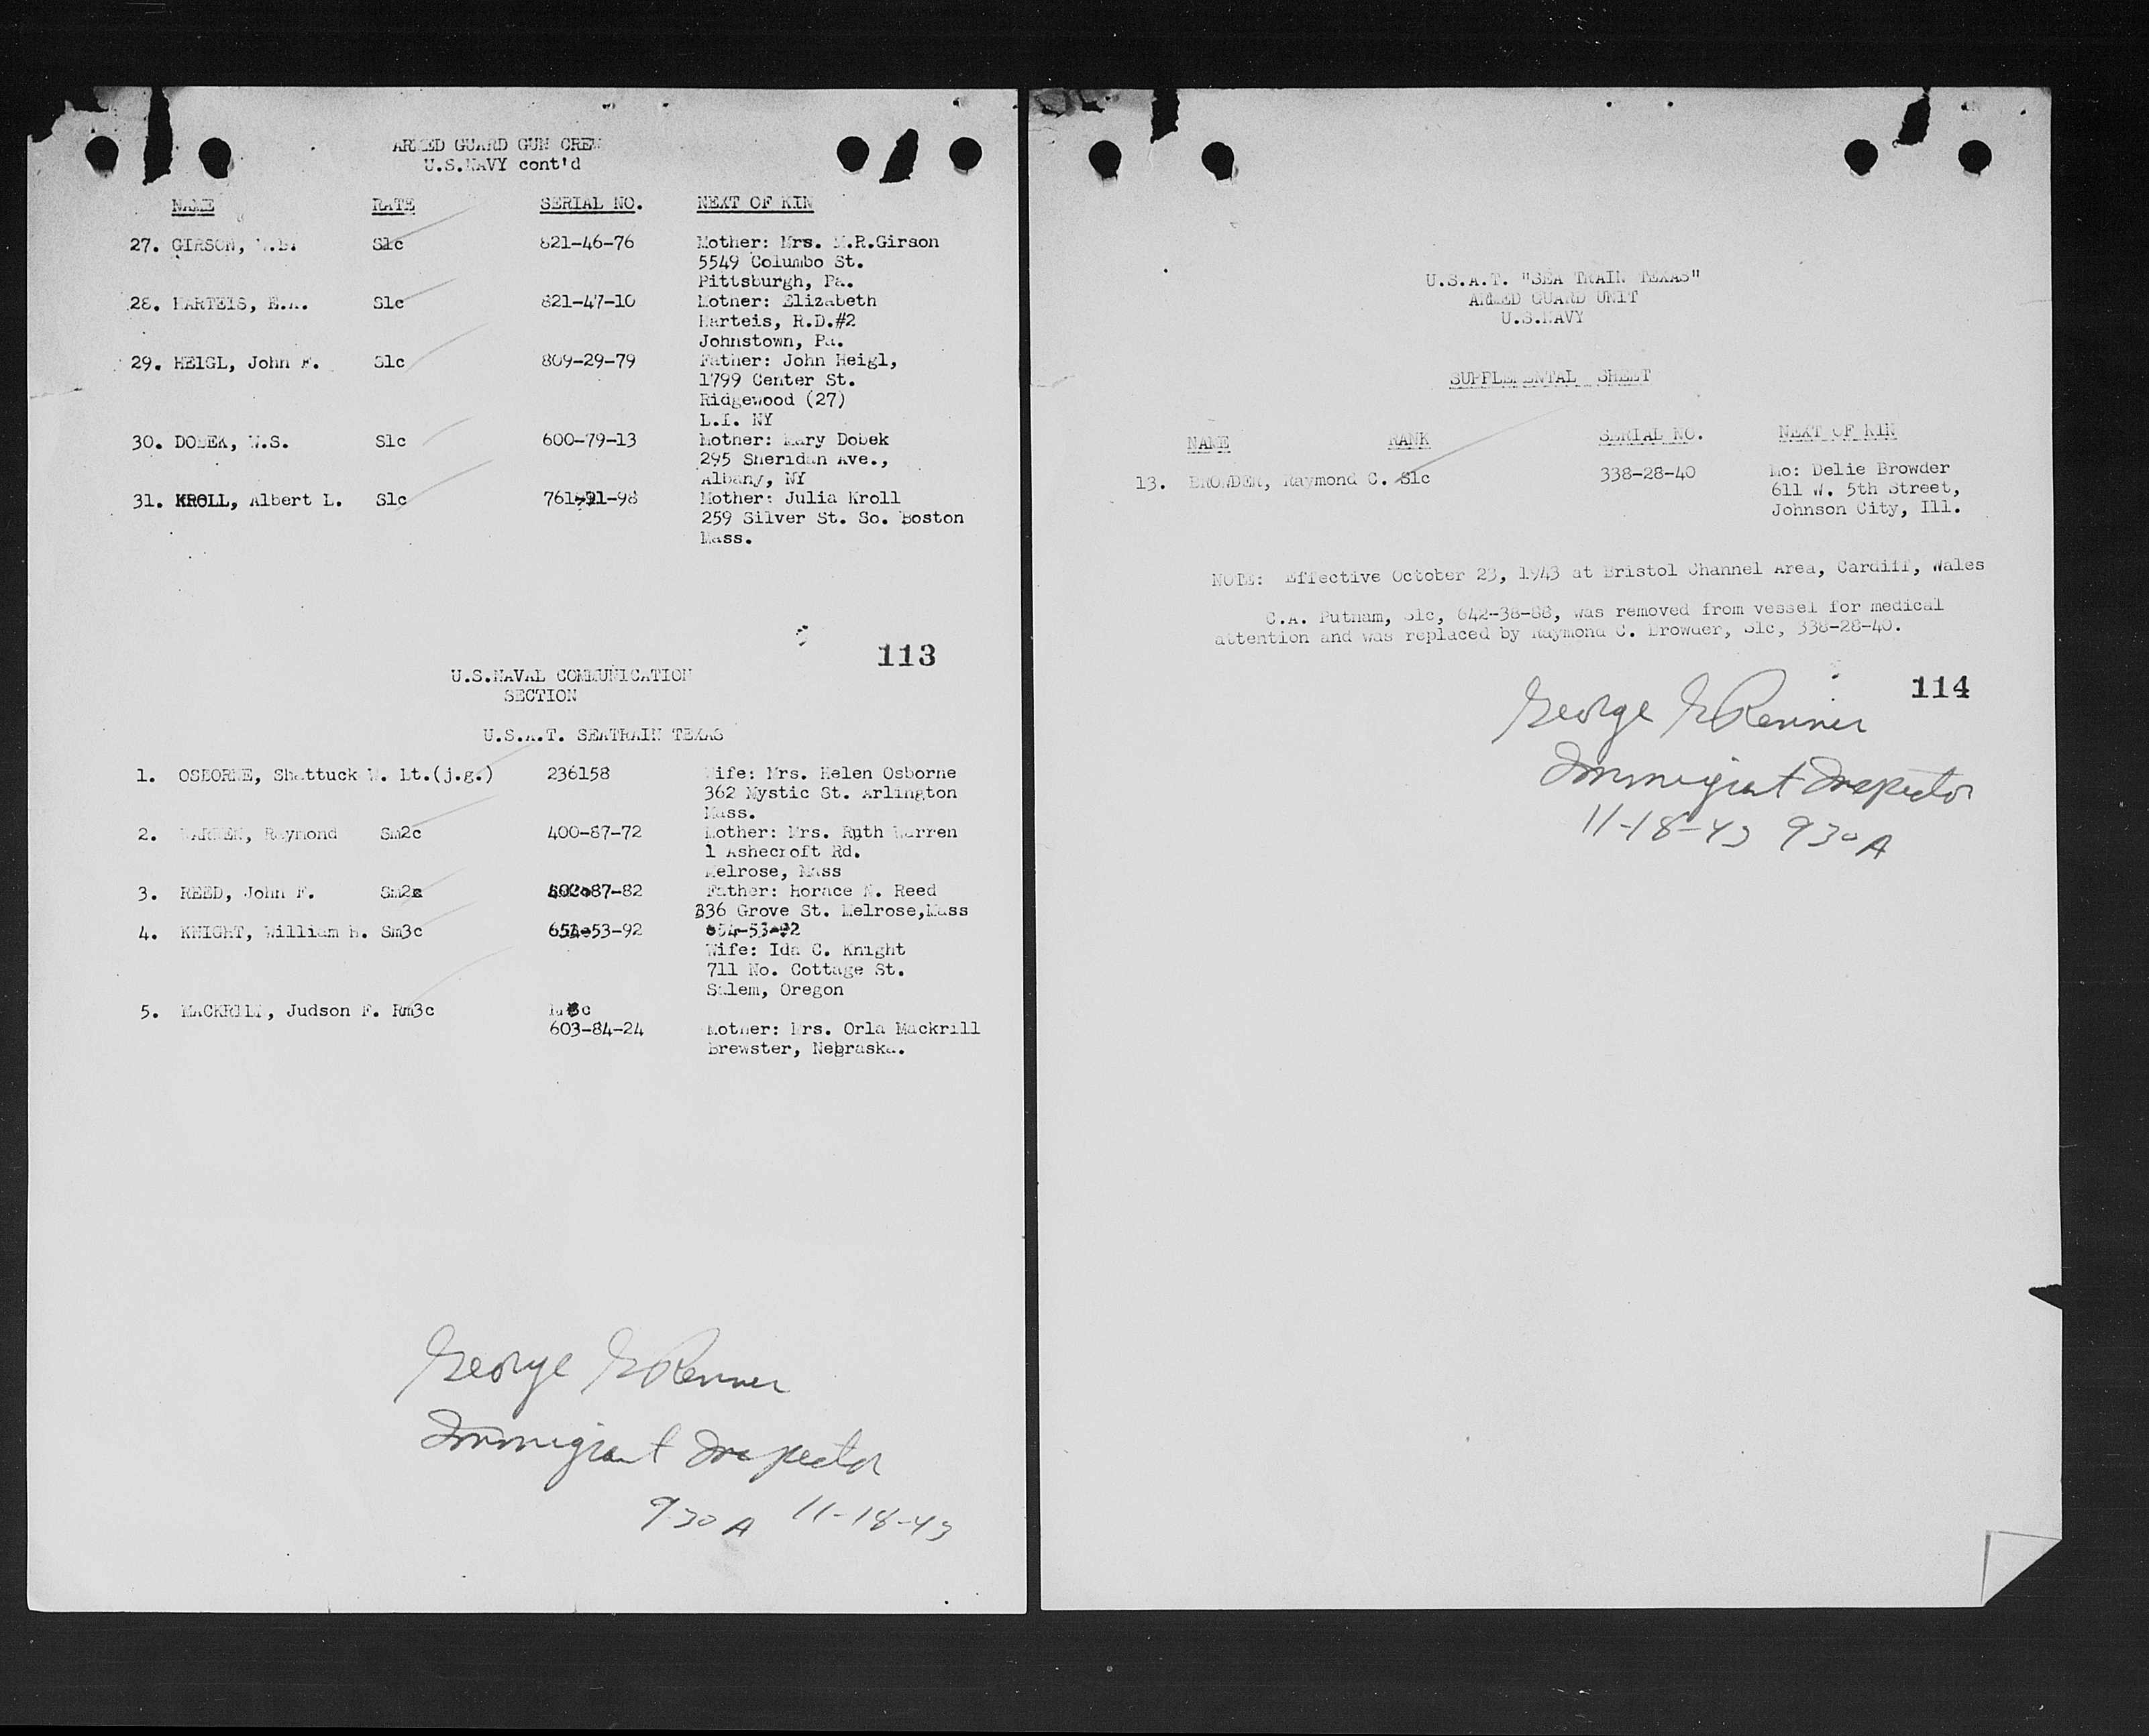 ARMED GUARD GUN CREW
U.S.NAVY cont'd
NAME RATE SERIAL NO. NEXT OF KIN
27. GIRSON, S1c 821-46-76 Mother: Mrs. M.R.Girson
5549 Columbo St.
Pittsburgh, Pa.
28. HARTEIS, E.A. S1c 821-47-10 Mother: Elizabeth
Harteis, R.D.#2
Johnstown, Pa.
29. HEIGL, John F. S1c 809-29-79 Father: John Heigl,
1799 Center St.
Ridgewood (27)
L.I. NY
30. DOBEK, W.S. S1c 600-79-13 Mother: Mary Dobek
295 Sheridan Ave.,
Albany, NY
31. KROLL, Albert L. S1c Mother: Julia Kroll
259 Silver St. So. Boston
Mass.
113
U.S.NAVAL COMMUNICATION
SECTION
U.S.A.T. SEATRAIN TEXAS
1. OSBORNE, Shattuck W. Lt.(j.g.) 236158 Wife: Mrs. Helen Osborne
362 Mystic St. Arlington
Mass.
2. WARREN, Raymond Sm2c 400-87-72 Mother: Mrs. Ruth Warren
1 Ashecroft Rd.
Melrose, Mass
3. REED, John F. Sm2c Father: Horace N. Reed
336 Grove St. Melrose,Mass
4. KNIGHT, William H. Sm3c 654-53-92 654-53-92
Wife: Ida C. Knight
711 No. Cottage St.
Salem, Oregon
5. MACKRILL, Judson F. Rm3c
603-84-24 Mother: Mrs. Orla Mackrill
Brewster, Nebraska.
George E Renner
Immigrant Inspector
930 A 11-18-43
U.S.A.T. "SEA TRAIN TEXAS"
ARMED GUARD UNIT
U.S.NAVY
SUPPLEMENTAL SHEET
NAME RANK SERIAL NO. NEXT OF KIN
13. BROWDER, Raymond C. S1c 338-28-40 Mo: Delie Browder
611 W. 5th Street,
Johnson City, Ill.
NOTE: Effective October 23, 1943 at Bristol Channel Area, Cardiff, Wales
C.A. Putnam, S1c, 642-38-88, was removed from vessel for medical
attention and was replaced by Raymond C. Browder, S1c, 338-28-40.
114
George E Renner
Immigrant Inspector
11-18-43 930 A